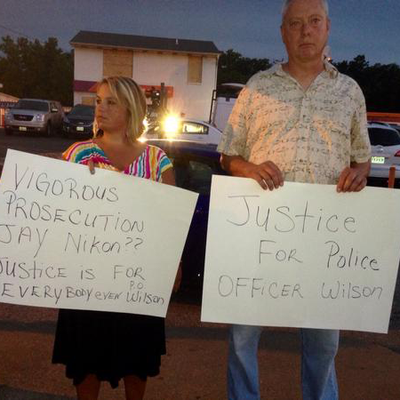 VIGOROUS
PROSECUTION
JAY NIKON??
JUSTICE IS FOR
EVERYBODY even P.O. Wilson
JUSTICE
FOR POLICE
OFFICER WILSON